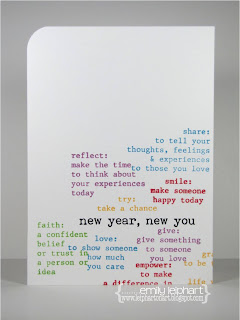 share:
to tell your
thoughts, feelings
& experiences
to those you love
reflect:
make the time
to think about
your experiences
today
smile:
make someone
happy today
try:
take a chance
new year, new you
faith:
a confident
belief
or trust in
a person or
idea
love:
to show someone
how much
you care
give:
give something
to someone
in need
empower:
to make
a difference in
to be
life
{emily leiphart}
www.leiphartonart.blogspot.com